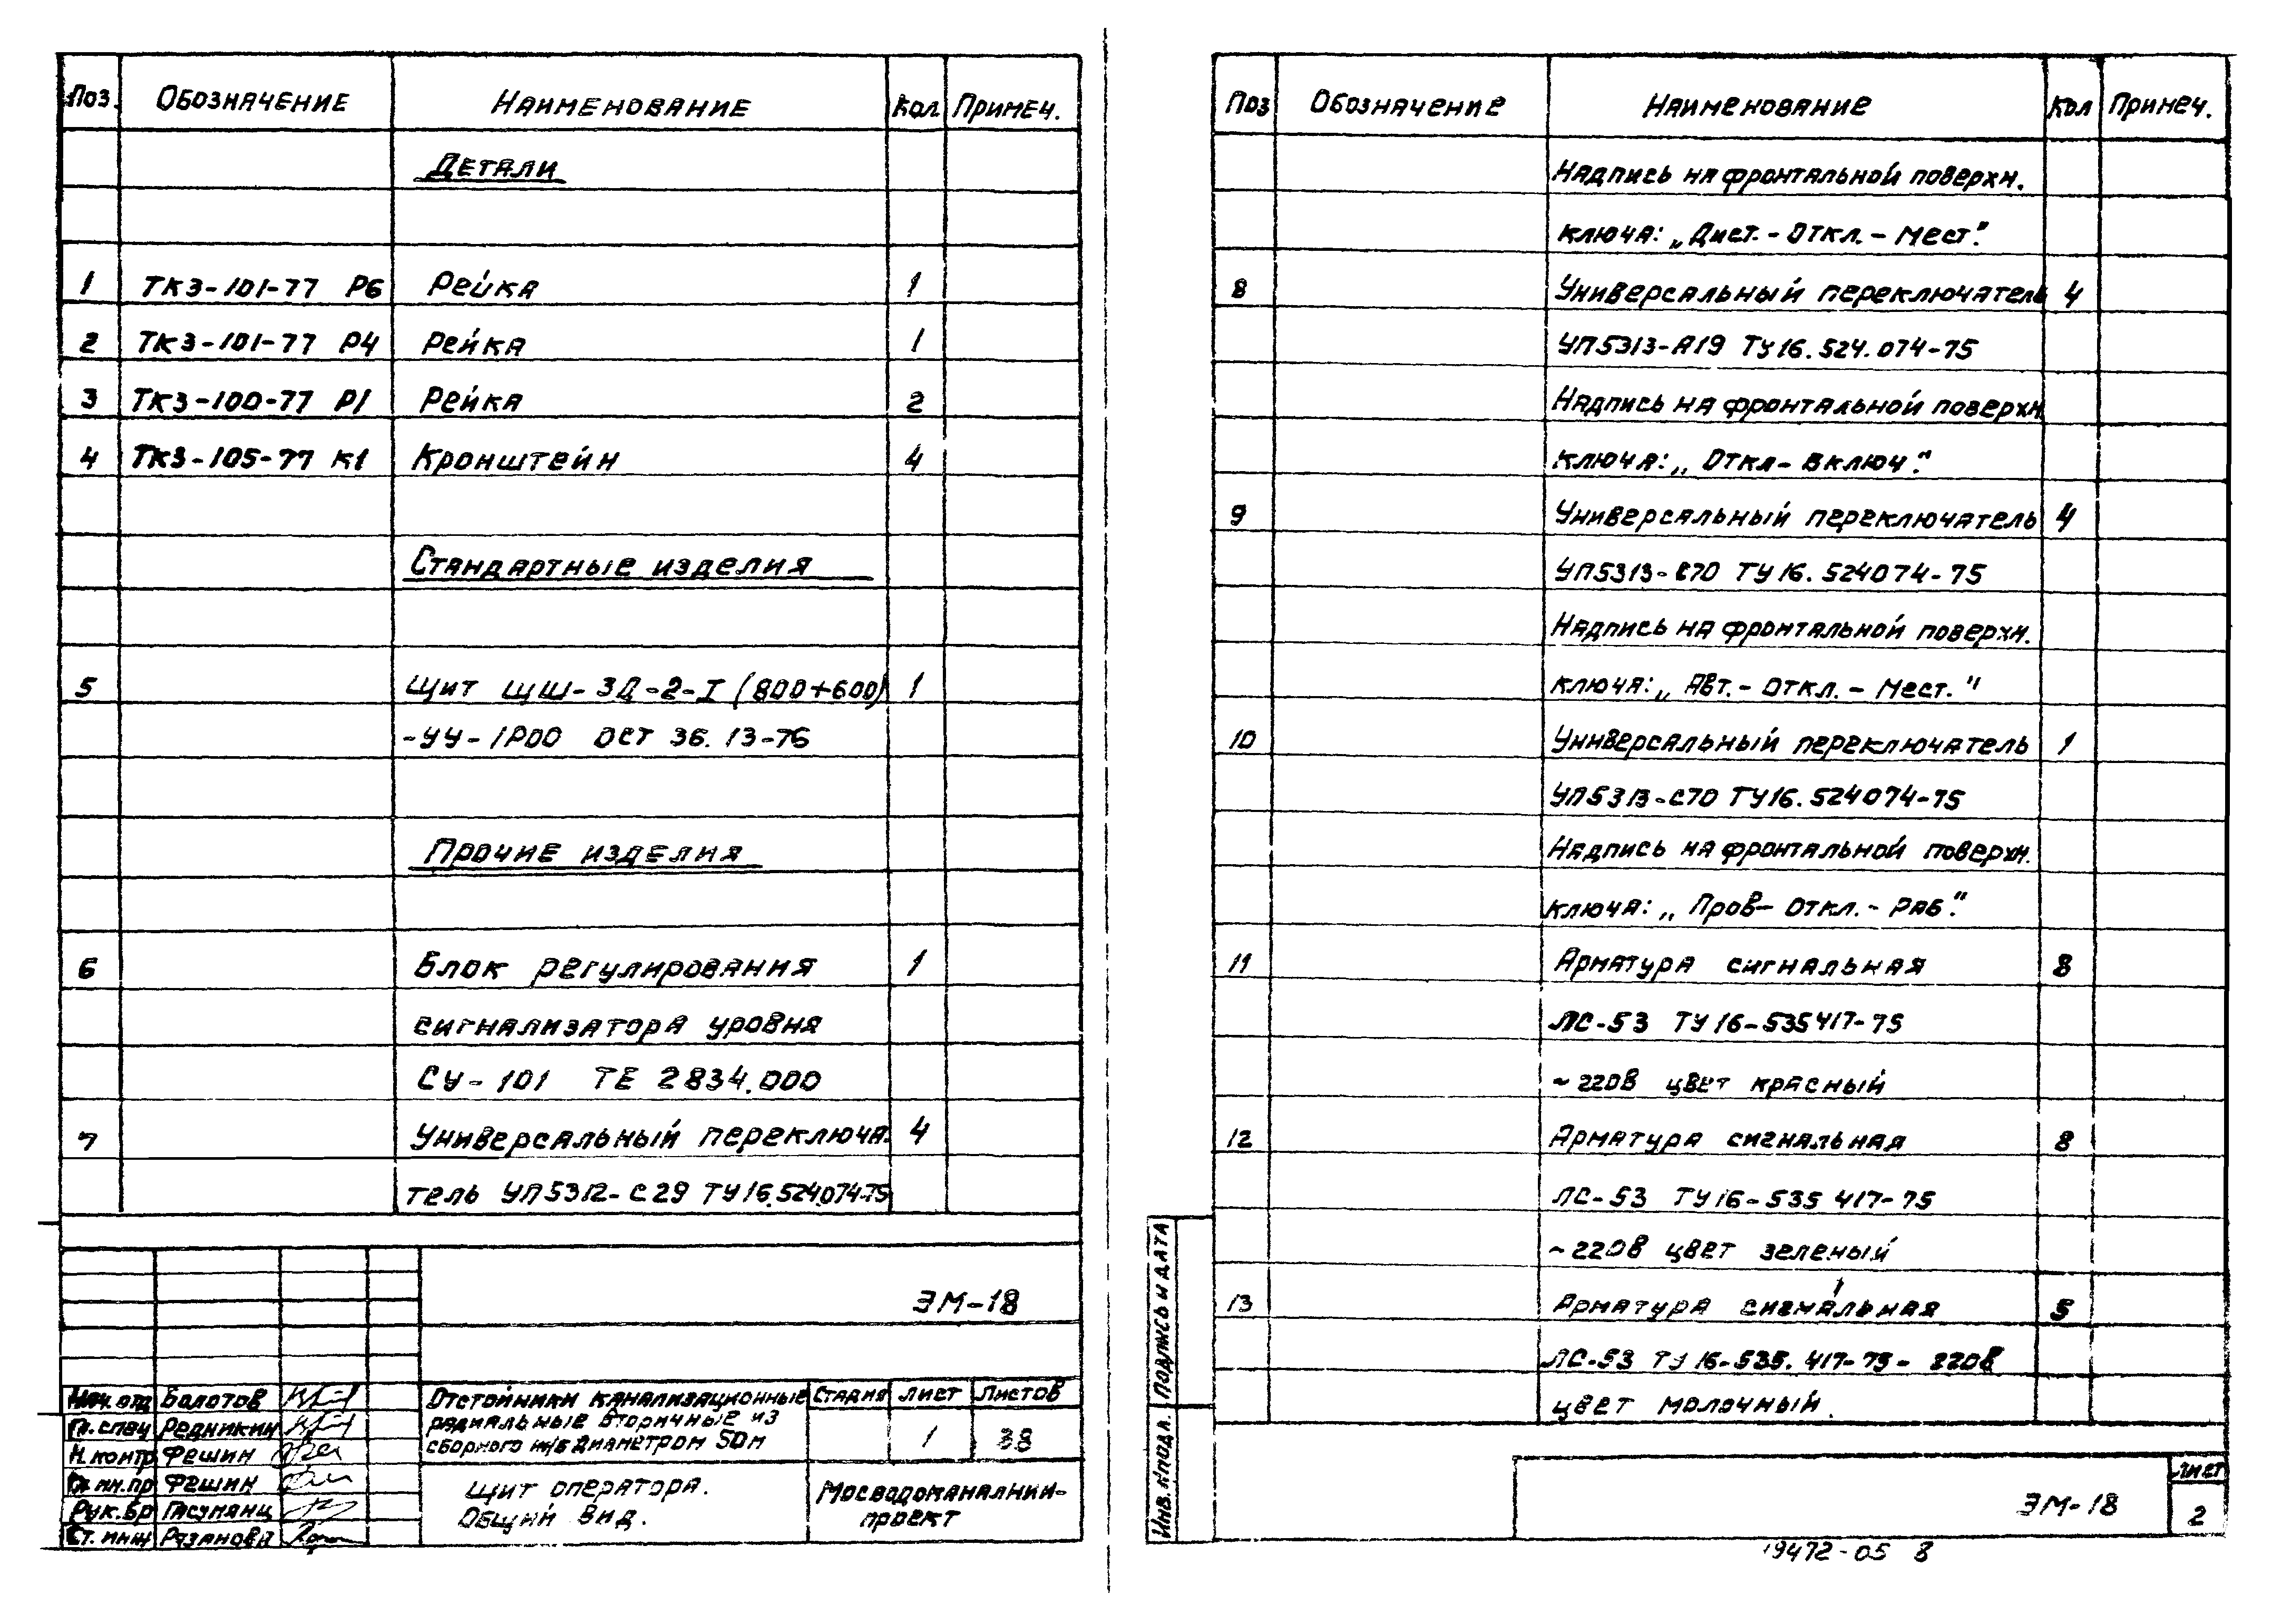 Поз. Обозначение Наименование Кол. Примеч.
Детали
1 ТК3-101-77 Р6 Рейка 1
2 ТК3-101-77 Р4 Рейка 1
3 ТК3-100-77 Р1 Рейка 2
4 ТК3-105-77 К1 Кронштейн 4
Стандартные изделия
5 Щит ЩШ-ЗД-2-I (800+600) 1
-УУ-IP00 ОСТ 36.13-76
Прочие изделия
6 Блок регулирования 1
сигнализатора уровня
СУ-101 ТЕ 2834.000
7 Универсальный переключа- 4
тель УП5312-С29 ТУ16.524.074-75
ЭМ-18
Нач. отд Болотов
Гл. спец Редникин
Н. контр Фешин
Гл. ин. пр Фешин
Рук. бр Гасумянц
Ст. инж Рязанова
Отстойники канализационные
радиальные вторичные из
сборного ж/б диаметром 50м
Стадия Лист Листов
1 38
Щит оператора.
Общий вид.
Мосводоканалнии-
проект
Поз Обозначение Наименование Кол Примеч.
Надпись на фронтальной поверхн.
ключа: „Дист.-Откл.-Мест."
8 Универсальный переключатель 4
УП5313-А19 ТУ16.524.074-75
Надпись на фронтальной поверхн.
ключа: „Откл-Включ."
9 Универсальный переключатель 4
УП5313-С70 ТУ16.524074-75
Надпись на фронтальной поверхн.
ключа: „Авт.-Откл.-Мест."
10 Универсальный переключатель 1
УП5313-С70 ТУ16.524074-75
Надпись на фронтальной поверхн.
ключа: „Пров-Откл.-Раб."
11 Арматура сигнальная 8
ЛС-53 ТУ16-535417-75
~220В цвет красный
12 Арматура сигнальная 8
ЛС-53 ТУ16-535 417-75
~220В цвет зеленый
13 Арматура сигнальная 5
ЛС-53 ТУ 16-535.417-75- 220В
цвет молочный
Инв. № подл. Подпись и дата
ЭМ-18
Лист
2
19472-05 8